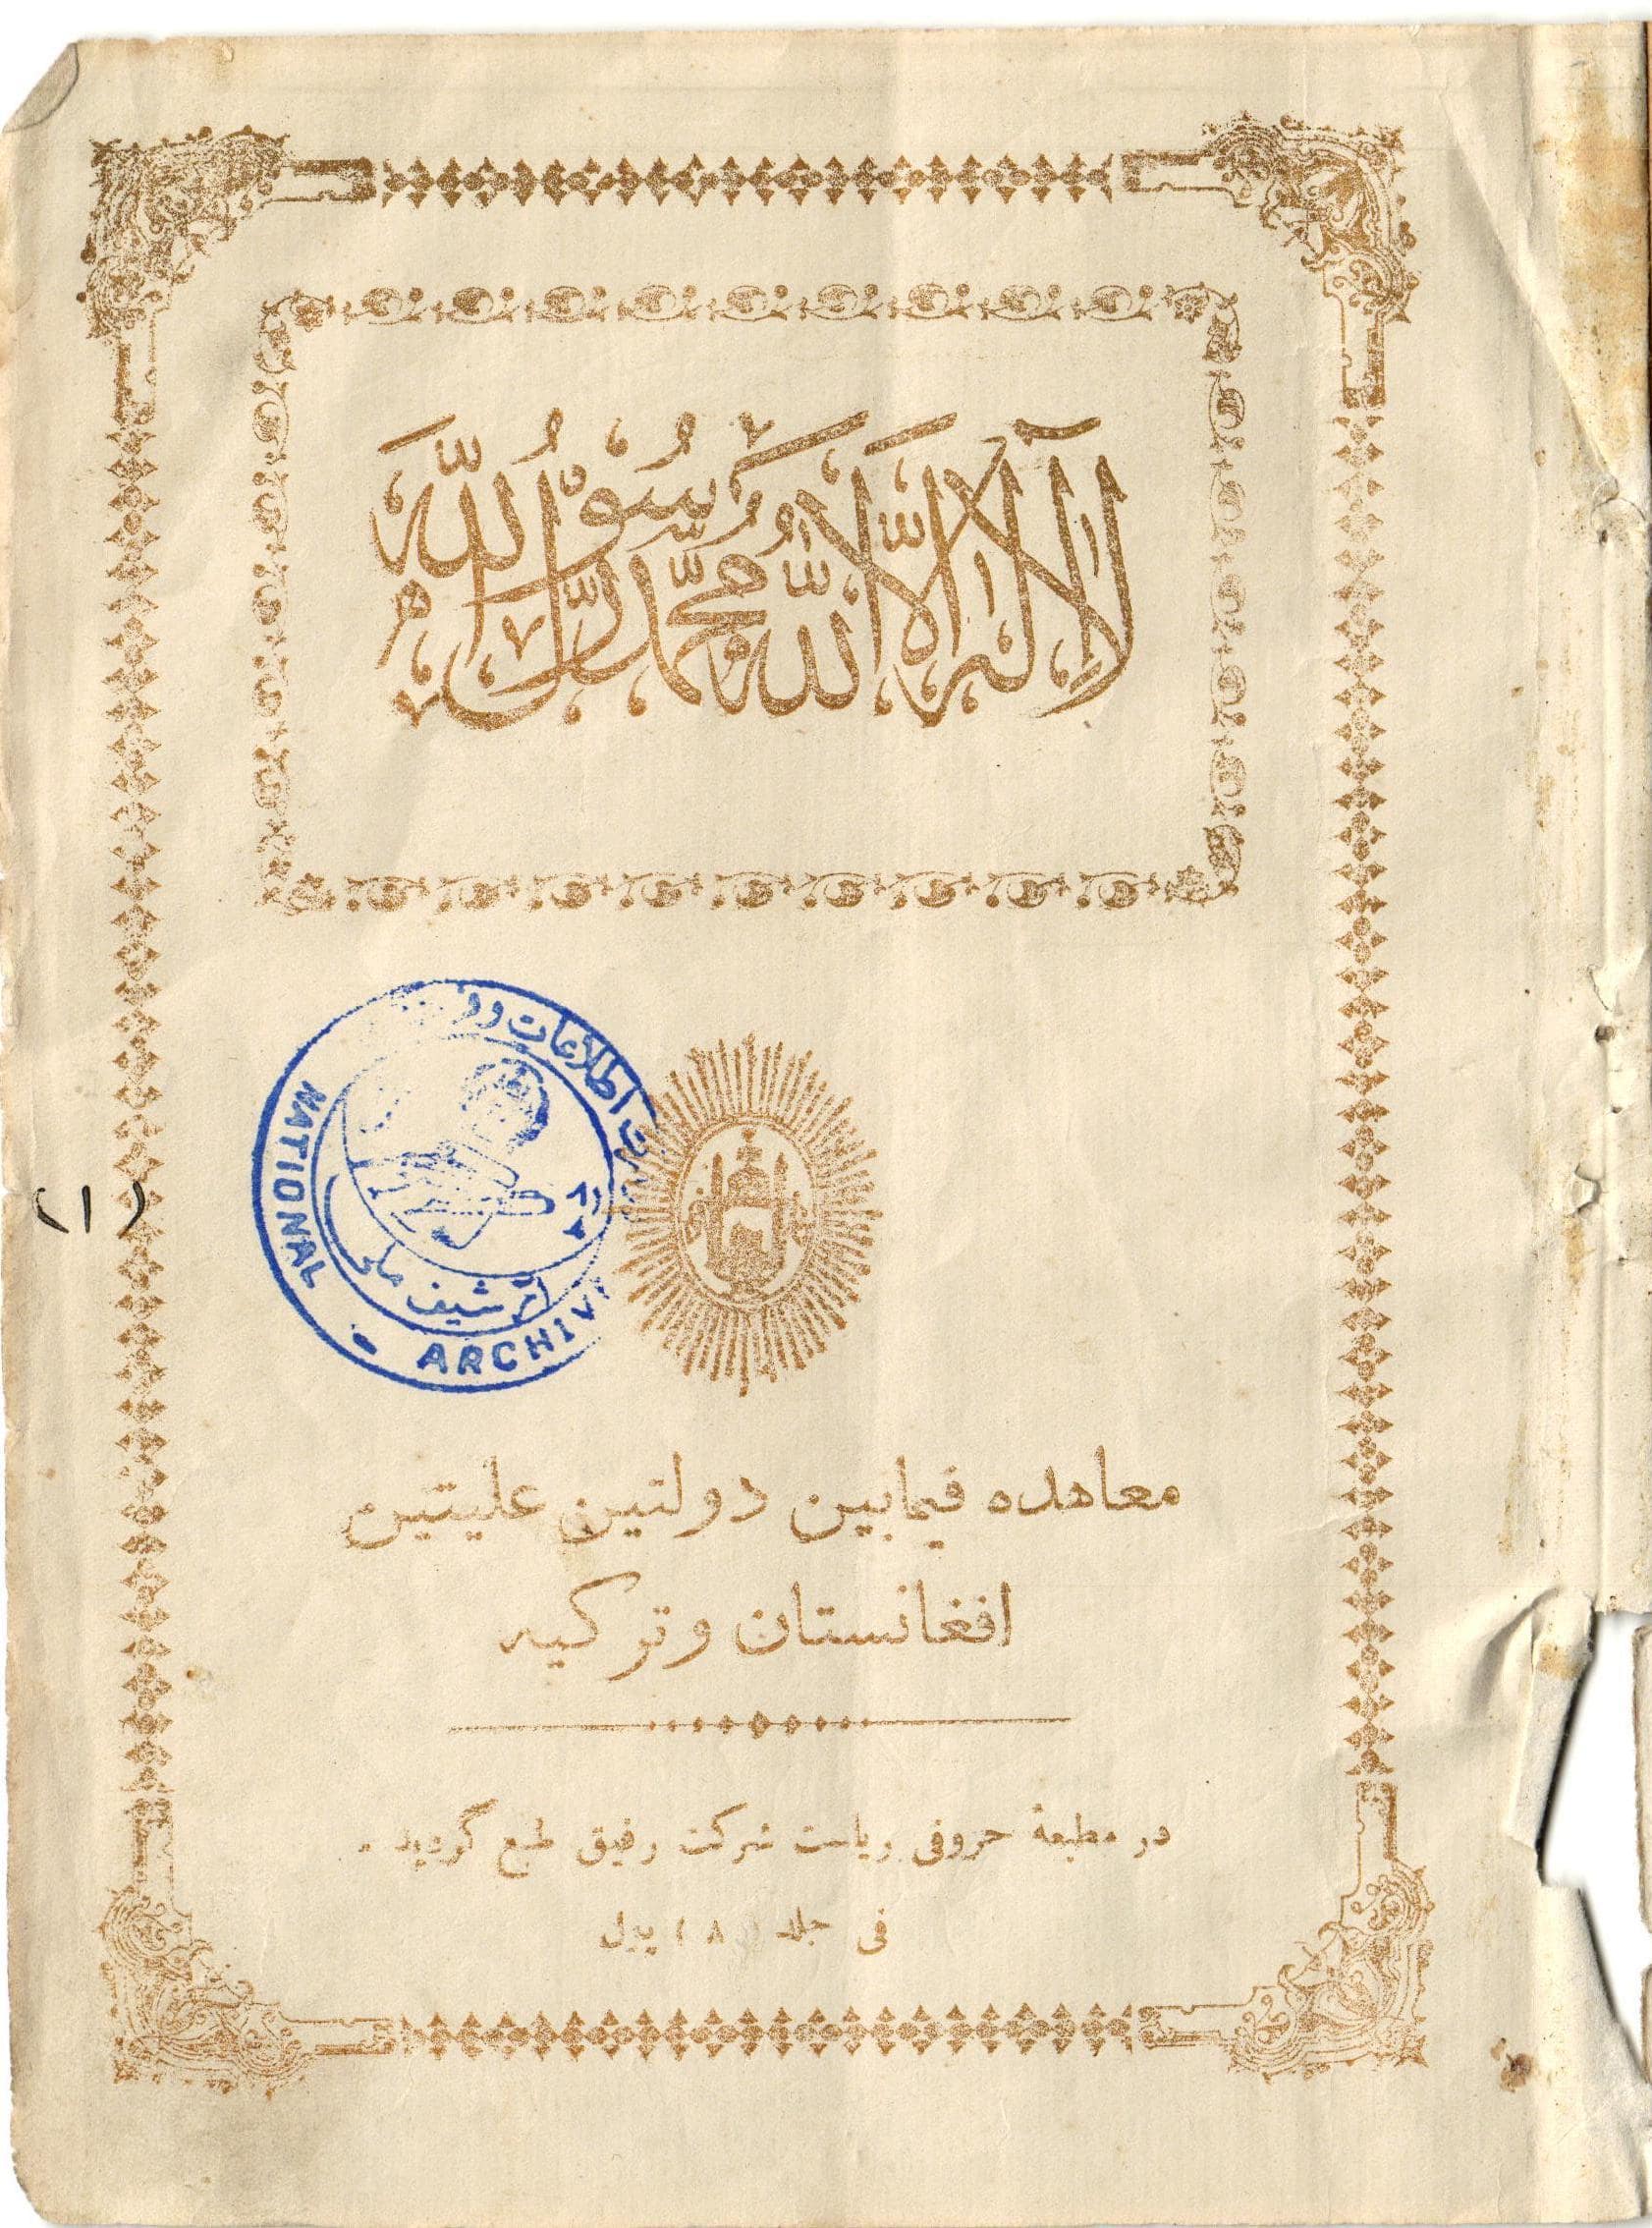 لَا إِلٰهَ إِلَّا اللّٰهُ مُحَمَّدٌ رَسُوْلُ اللّٰهِ
اطلاعات
NATIONAL
آرشیف
(١)
معاهده فیمابین دولتین علیتین
افغانستان و ترکیه
در مطبعهٔ حروفی ریاست شرکت رفیق طبع گردید .
فی جلد ( ٨ ) پول